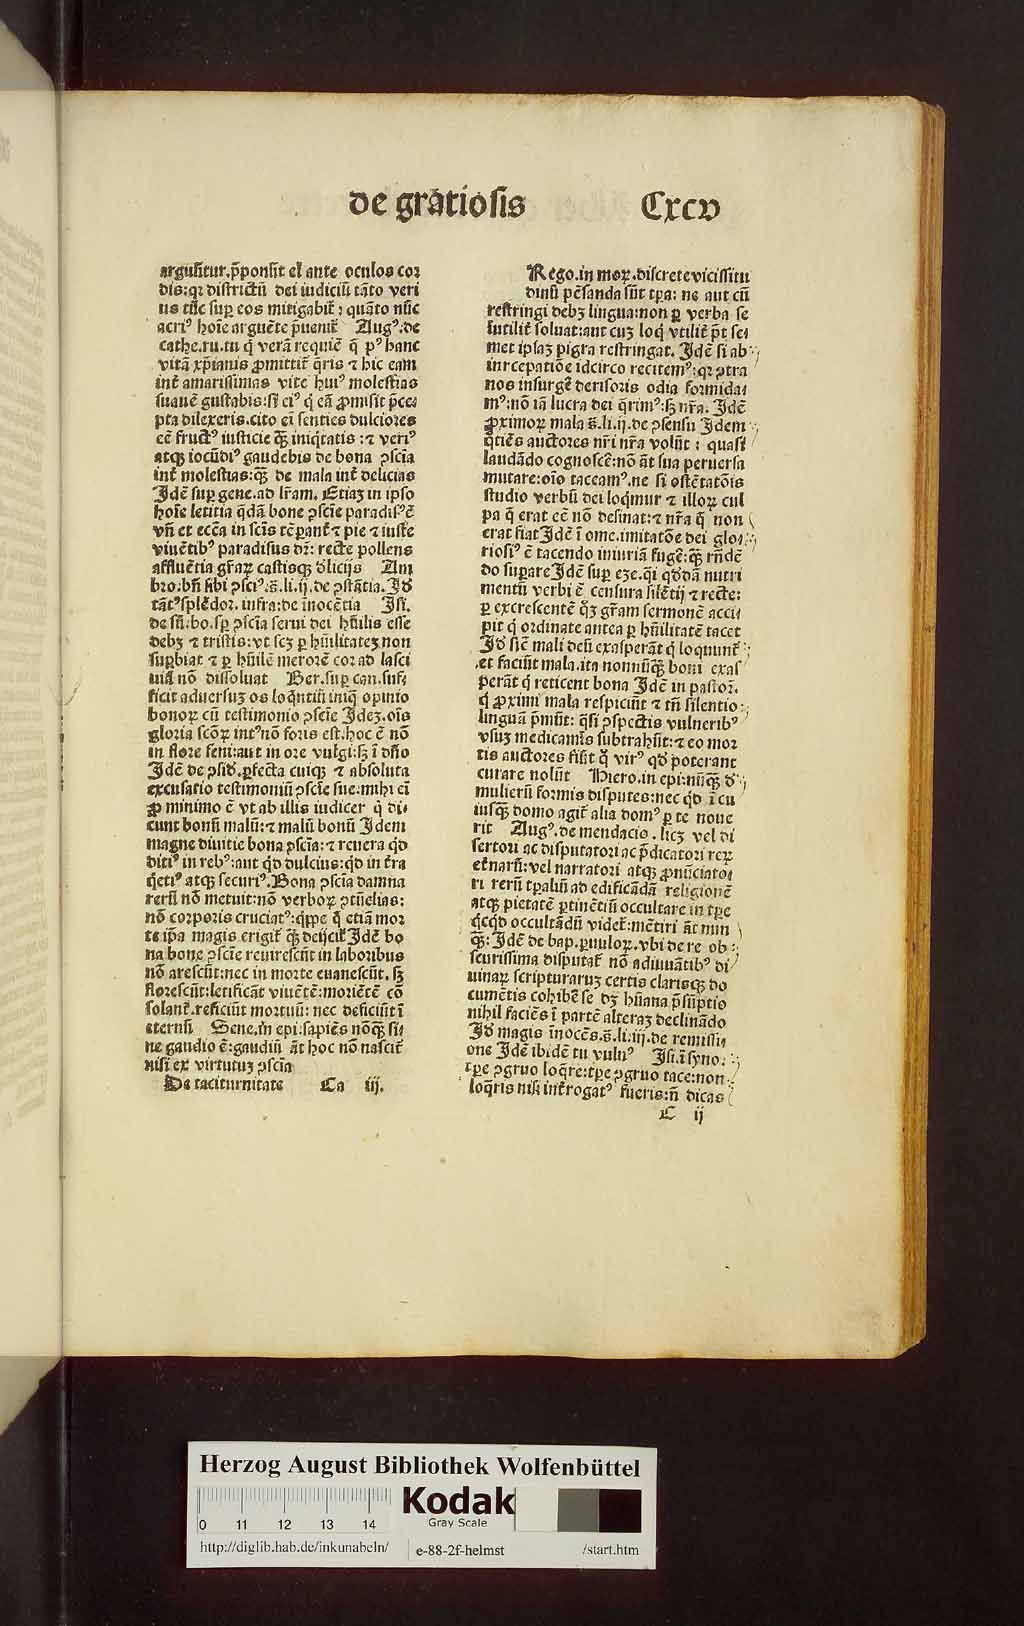 de grātiosis Cxcv
arguūtur. p̄ponūt el̄ ante oculos cor
dis: qꝛ districtū dei iudiciū tāto veri
us tūc suꝑ eos mitigabit̄ ; quāto nūc
acriꝰ hoīe arguēte p̄uenit̄ Augꝰ. de
cathe. ru. tu q̇ verā requiē q̄ pꝰ hanc
vitā xp̄ianis ꝓmittit̄ q̄ris ⁊ hic eam
int̄ amarissimas vite huiꝰ molestias
suauē gustabis: si eiꝰ q̇ eā ꝓmisit p̄ce⸗
pta dilexeris. cito ei senties dulciores
eē fructꝰ iusticie q̄ꝫ iniq̇tatis : ⁊ veriꝰ
atqꝫ iocūdiꝰ gaudebis de bona ꝯscīa
int̄ molestias: q̄ꝫ de mala int̄ delicias
Idē suꝑ gene. ad lr̄am. Etiaꝫ in ipso
hoīe letitia q̄dā bone ꝯscīe paradisꝰ ē
vn̄ et eccl̄ia in scīs tēꝑant̄ ⁊ pie ⁊ iuste
viuētibꝰ paradisus dr̄: recte pollens
affluētia gr̄aꝝ castisqꝫ d̓licijs Am
bro: bn̄ sibi ꝯsciꝰ. s̄. li. ij. de ꝯstātia. Jd̓
tātꝰ splēdor. infra: de īnocētia Jsi.
de sū: bo. sꝑ ꝯscīa serui dei hūilis esse
debꝫ ⁊ tristis: vt scꝫ ꝑ hūilitateꝫ non
suꝑbiat ⁊ ꝑ hūilē merorē cor ad lasci
uiā nō dissoluat Ber. suꝑ can. suf⸗
ficit aduersuꝫ os loq̄ntiū iniq̄ opinio
bonoꝝ cū testimonio ꝯscīe Jdeꝫ. oīs
gloria scōꝝ intꝰ nō foris est. hoc ē nō
in flore feni: aut in ore vulgi: sꝫ ī dn̄o
Jdē de ꝯsid̓. ꝑfecta cuiqꝫ ⁊ absoluta
excusatio testimoniū ꝯscīe sue: mihi eī
ꝓ minimo ē vt ab illis iudicer q̇ di⸗
cunt bonū malū: ⁊ malū bonū Jdem
magne diuitie bona ꝯscīa: ⁊ reuera qd̓
ditiꝰ in rebꝰ: aut qd̓ dulcius: qd̓ in t̄ra
q̇etiꝰ atqꝫ securiꝰ. Bona ꝯscīa damna
rerū nō metuit: nō verboꝝ ꝯtūelias:
nō corporis cruciatꝰ: q̇ppe q̄ etiā mor
te ip̄a magis erigit̄ q̄ꝫ deijcit̄ Jdē bo
na bone ꝯscīe reuirescūt in laboribus
nō arescūt: nec in morte euanescūt. sꝫ
florescūt: letificāt viuētē: moriētē cō
solant̄. reficiūt mortuū: nec deficiūt ī
eternū Sene. in epi: sapiēs nōq̄ꝫ si⸗
ne gaudio ē: gaudiū āt hoc nō nascit̄
nisi ex virtutuꝫ ꝯscīa
De taciturnitate Ca iij.
Rego. in moꝝ. discrete vicissitu
dinū pēsanda sūt tp̄a: ne aut cū
restringi debꝫ lingua: non ꝑ verba se
sutilit̄ soluat: aut cuꝫ loq̇ vtilit̄ p̄t se⸗
met ipsaꝫ pigra restringat. Jdē si ab
inrcepatiōe idcirco recitemꝰ: qꝛ ꝯtra
nos insurgē derisoris odia formida⸗
mꝰ: nō iā lucra dei q̄rimꝰ: sꝫ nr̄a. Jdē
ꝓximoꝝ mala s̄. li. ij. de ꝯsensu Jdem
q̇tiēs auctores nr̄i nr̄a volūt : quasi
laudādo cognoscē: nō āt sua peruersa
mutare: oīo taceamꝰ. ne si ostētatōis
studio verbū dei loq̇mur ⁊ illoꝝ cul
pa q̄ erat eē nō desinat: ⁊ nr̄a q̄ non
erat fiat Jdē ī ome. imitatōe dei glo⸗
riosiꝰ ē tacendo iniuriā fugē: q̄ꝫ rn̄dē
do suꝑare Jdē suꝑ eze. q̄i qd̓dā nutri
mentū verbi ē censura silētij ⁊ recte:
ꝑ excrescentē q̄ꝫ gr̄am sermonē acci⸗
pit q̇ ordinate antea ꝑ hūilitatē tacet
Jd̓ sic̄ mali deū exasperāt q̇ loquunt̄
et faciūt mala. ita nonnūq̄ꝫ boni exas
perāt q̇ reticent bona Jdē in pastoꝝ.
q̇ ꝓximi mala respiciūt ⁊ tn̄ silentio
linguā p̄mūt: q̄si ꝯspectis vulneribꝰ
vsuꝫ medicamīs subtrahūt: ⁊ eo mor
tis auctores fiūt q̇ virꝰ qd̓ poterant
curare nolūt Hiero. in epi: nūq̄ꝫ d̓
mulierū formis disputes: nec qd̓ ī cu
iusqꝫ domo agit̄ alia domꝰ ꝑ te noue
rit Augꝰ. de mendacio. licꝫ vel di
sertori ac disputatori ac p̄dicatori reꝝ
et̄narū: vel narratori atqꝫ ꝓnūciato⸗
ri rerū tp̄aliū ad edificādā religionē
atqꝫ pietatē ꝑtinētiū occultare in tp̄e
q̇cq̇d occultādū videt̄: mētiri āt nun
q̄ꝫ: Jdē de bap. paruuloꝝ. vbi de re ob
scurissima disputat̄ nō adiuuātibꝰ di
uinaꝝ scripturaruꝫ certis clarisqꝫ do
cumētis cohibē se dꝫ hūana p̄sūptio
nihil faciēs ī partē alteraꝫ declinādo
Jd̓ magis īnocēs. s̄. li. iij. de remissi
one Jdē ibidē tu vulnꝰ Jsi. ī syno.
tp̄e ꝯgruo loq̄re: tp̄e ꝯgruo tace: non
loq̄ris nisi int̄rogatꝰ fueris: n̄ dicas
C ij
Herzog August Bibliothek Wolfenbüttel
0 11 12 13 14
Kodak
Gray Scale
http://diglib.hab.de/inkunabeln/ e-88-2f-helmst /start.htm